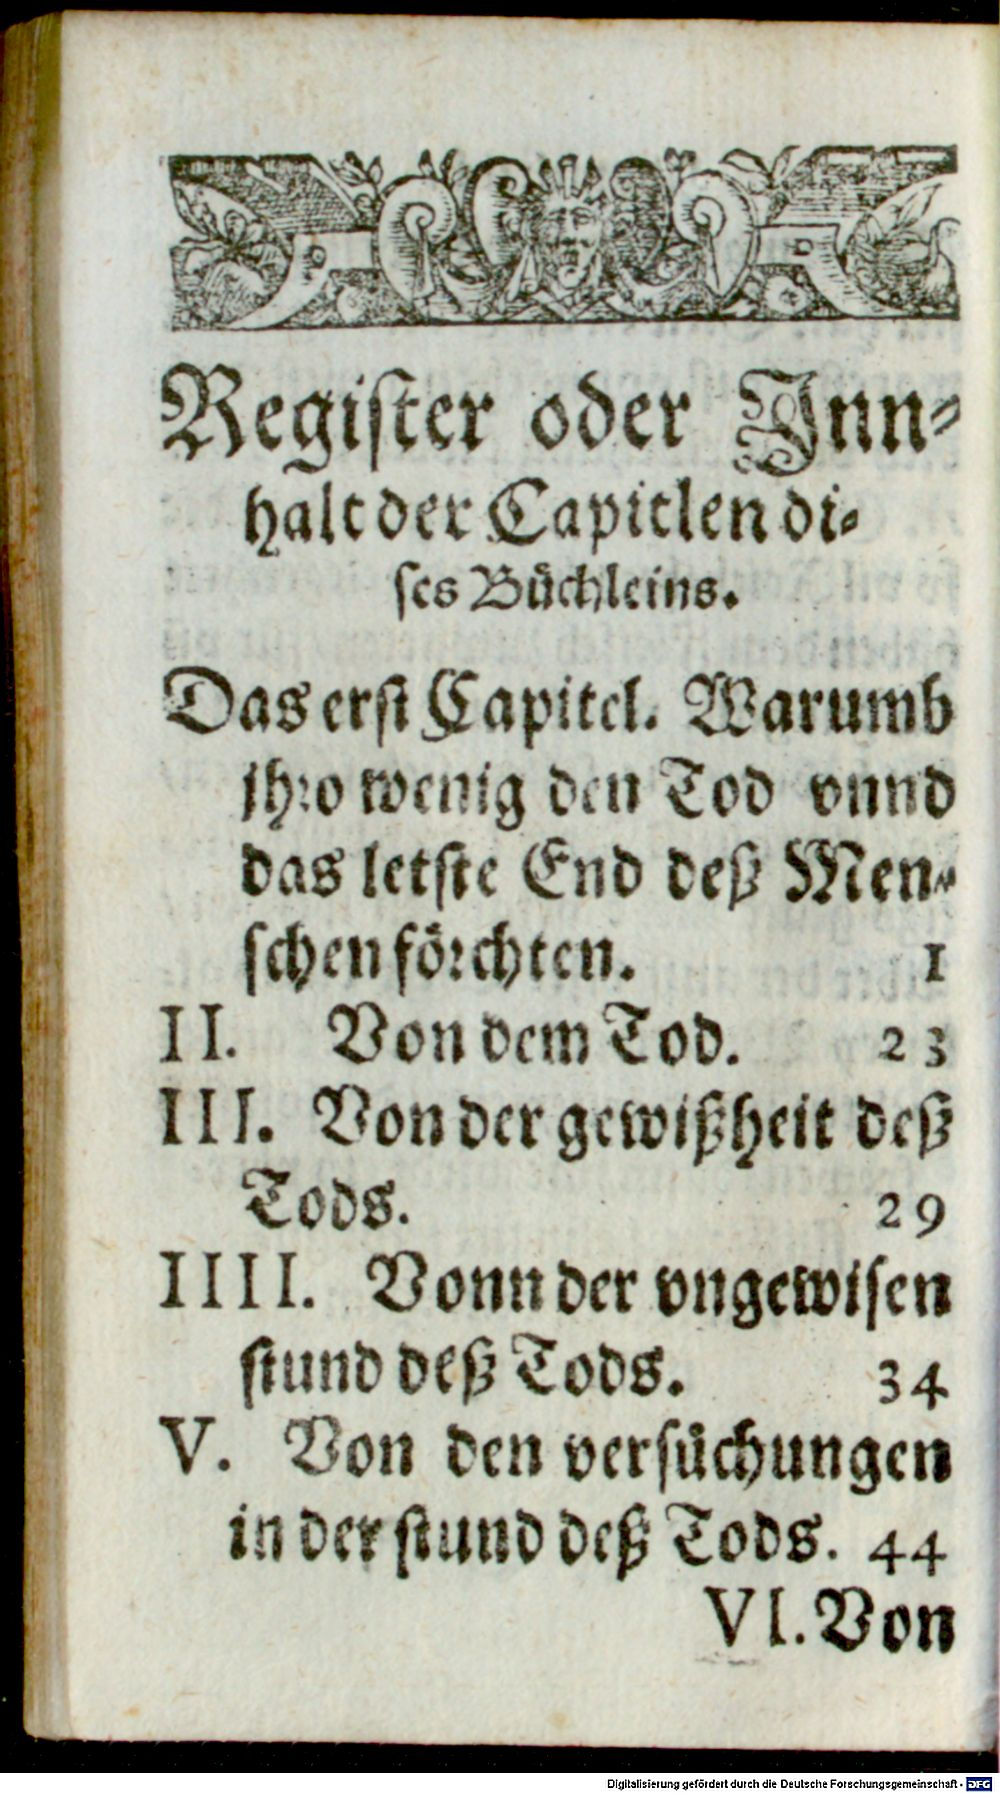 Register oder Jnn⸗
halt der Capitlen di⸗
ses Büchleins.
Das erst Capitel. Warumb
jhro wenig den Tod vnnd
das letste End deß Men⸗
schen förchten. 1
II. Von dem Tod. 23
III. Von der gewißheit deß
Tods. 29
IIII. Vonn der vngewisen
stund deß Tods. 34
V. Von den versüchungen
in der stund deß Tods. 44
VI. Von
Digitalisierung gefördert durch die Deutsche Forschungsgemeinschaft - DFG